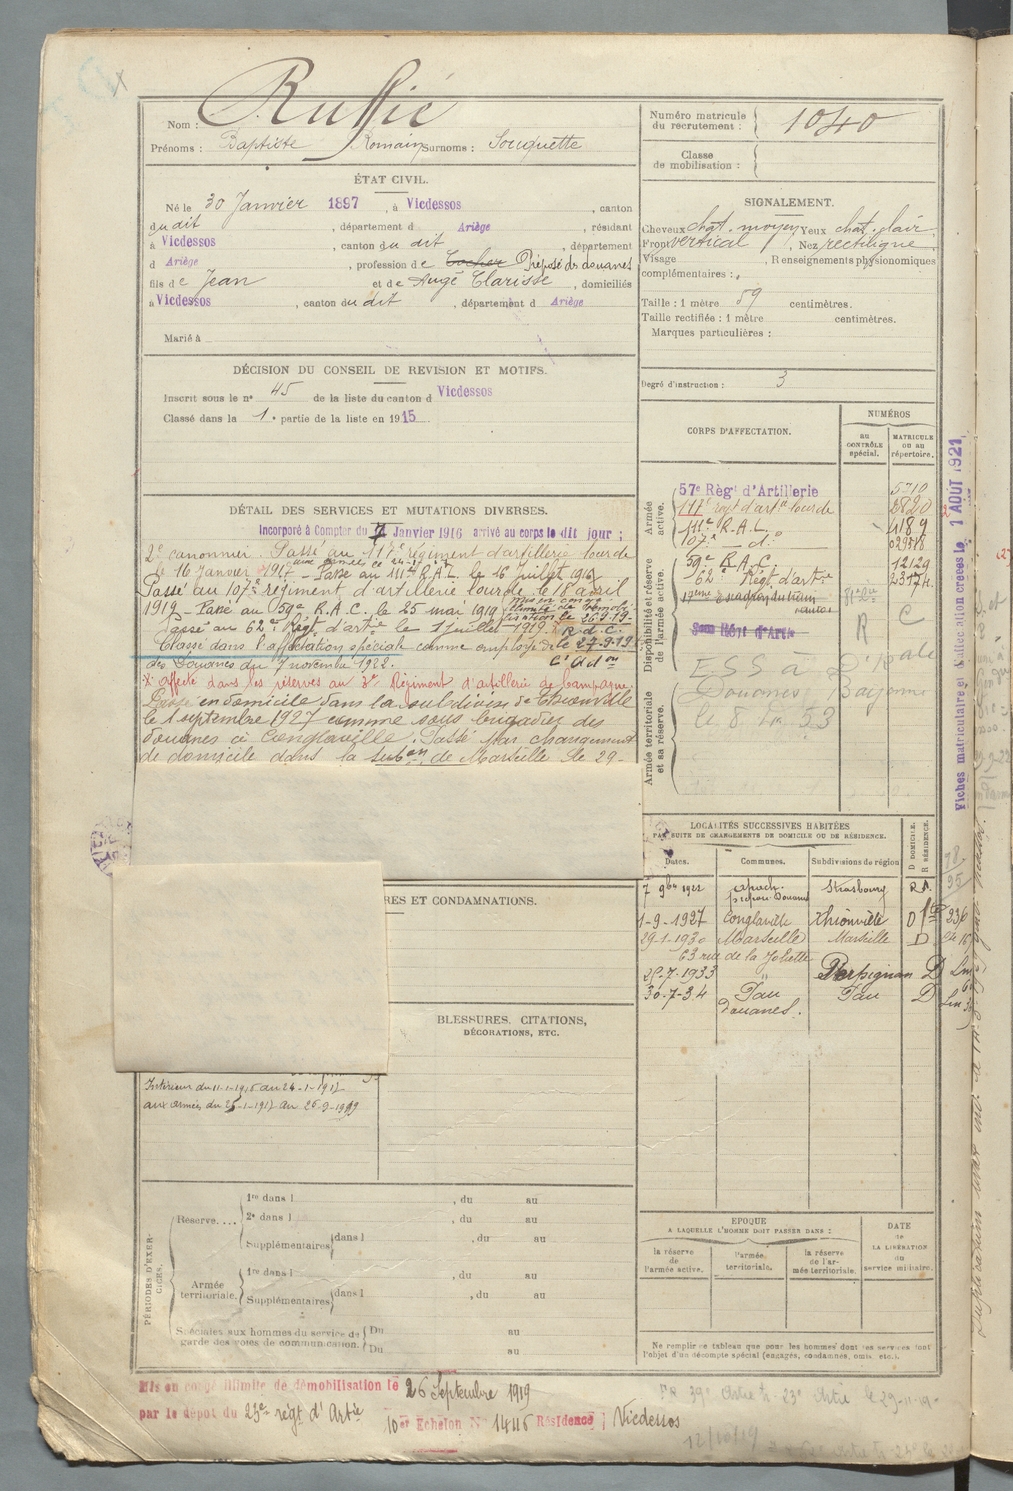 Nom : Ruffié
Prénoms : Baptiste Romain Surnoms : Souquette
ÉTAT CIVIL.
Né le 30 Janvier 1897, à Vicdessos, canton
dudit, département d Ariège, résidant
à Vicdessos, canton du dit, département
d Ariège, profession de Cocher Préposé des douanes
fils de Jean et de Augé Clarisse, domiciliés
à Vicdessos, canton du dit, département d Ariège
Marié à
DÉCISION DU CONSEIL DE REVISION ET MOTIFS.
Inscrit sous le n° 45 de la liste du canton d Vicdessos
Classé dans la 1e partie de la liste en 1915
DÉTAIL DES SERVICES ET MUTATIONS DIVERSES.
Incorporé à Compter du 7 Janvier 1916 arrivé au corps le dit jour ;
2e canonnier. Passé au 117e régiment d'artillerie lourde
le 16 Janvier 1917 - Passé au 111e R.A.L. le 16 juillet 1917
Passé au 107e régiment d'artillerie lourde le 18 avril
1919 - Passé au 59e R.A.C. le 25 mai 1919
mis en congé illimité de démobilisation le 26.9.19
Passé au 62e Régt d'artie le 1 juillet 1919. X R.d.C. le 27-9-19
Classé dans l'affectation spéciale comme employé
des Douanes du 7 novembre 1922.
X affecté dans les réserves au 3e Régiment d'artillerie de Campagne.
Passé en domicile dans la subdivision de Thionville
le 1 septembre 1927 comme sous brigadier des
douanes à Conglaville. Passé par changement
de domicile dans la subon de Marseille le 29-
RES ET CONDAMNATIONS.
BLESSURES, CITATIONS,
DÉCORATIONS, ETC.
Intérieur du 11-1-1916 au 24-1-1917
aux armées du 25-1-1917 au 26-9-1919
PÉRIODES D'EXERCICES.
Réserve.... 1re dans l , du au
2e dans l , du au
Supplémentaires dans l , du au
Armée territoriale. 1re dans l , du au
Supplémentaires dans l , du au
Spéciales aux hommes du service de garde des voies de communication. Du au
Du au
Mis en congé illimité de démobilisation le 26 Septembre 1919
par le dépôt du 23e régt d'Artie 10er Echelon N° 1446 Résidence Vicdessos
Numéro matricule
du recrutement : 1040
Classe
de mobilisation :
SIGNALEMENT.
Cheveux chat. moyen Yeux chat. clair
Front vertical, Nez rectiligne
Visage, Renseignements physionomiques
complémentaires :
Taille : 1 mètre 59 centimètres.
Taille rectifiée : 1 mètre centimètres.
Marques particulières :
Degré d'instruction : 3
CORPS D'AFFECTATION.
NUMÉROS
au CONTRÔLE spécial.
MATRICULE ou au répertoire.
Armée active.
57e Régt d'Artillerie 5710
117e régt d'artie lourde 2820
111e R.A.L. 4189
107e do
Disponibilité et réserve de l'armée active.
59e R.A.C. 12129
62e Régt d'artie 23174
17ème Escadron du train
R C
Armée territoriale et sa réserve.
Douanes Bayonne
Fiches matriculaire et d'affectation créées le 1 AOUT 1921
LOCALITÉS SUCCESSIVES HABITÉES
PAR SUITE DE CHANGEMENTS DE DOMICILE OU DE RÉSIDENCE.
Dates. Communes. Subdivisions de région D DOMICILE. R RÉSIDENCE.
7 9bre 1922 Apach préposé Douanes Strasbourg R
1-9-1927 Conglaville Thionville D
29-1-1930 Marseille Marseille D
63 rue de la Joliette
25-7-1933 " Perpignan D
30-7-34 Pau Pau D
Douanes.
EPOQUE
A LAQUELLE L'HOMME DOIT PASSER DANS :
DATE de LA LIBÉRATION du service militaire.
la réserve de l'armée active.
l'armée territoriale.
la réserve de l'armée territoriale.
Ne remplir ce tableau que pour les hommes dont les services font
l'objet d'un décompte spécial (engagés, condamnés, omis, etc.).
12/10/19